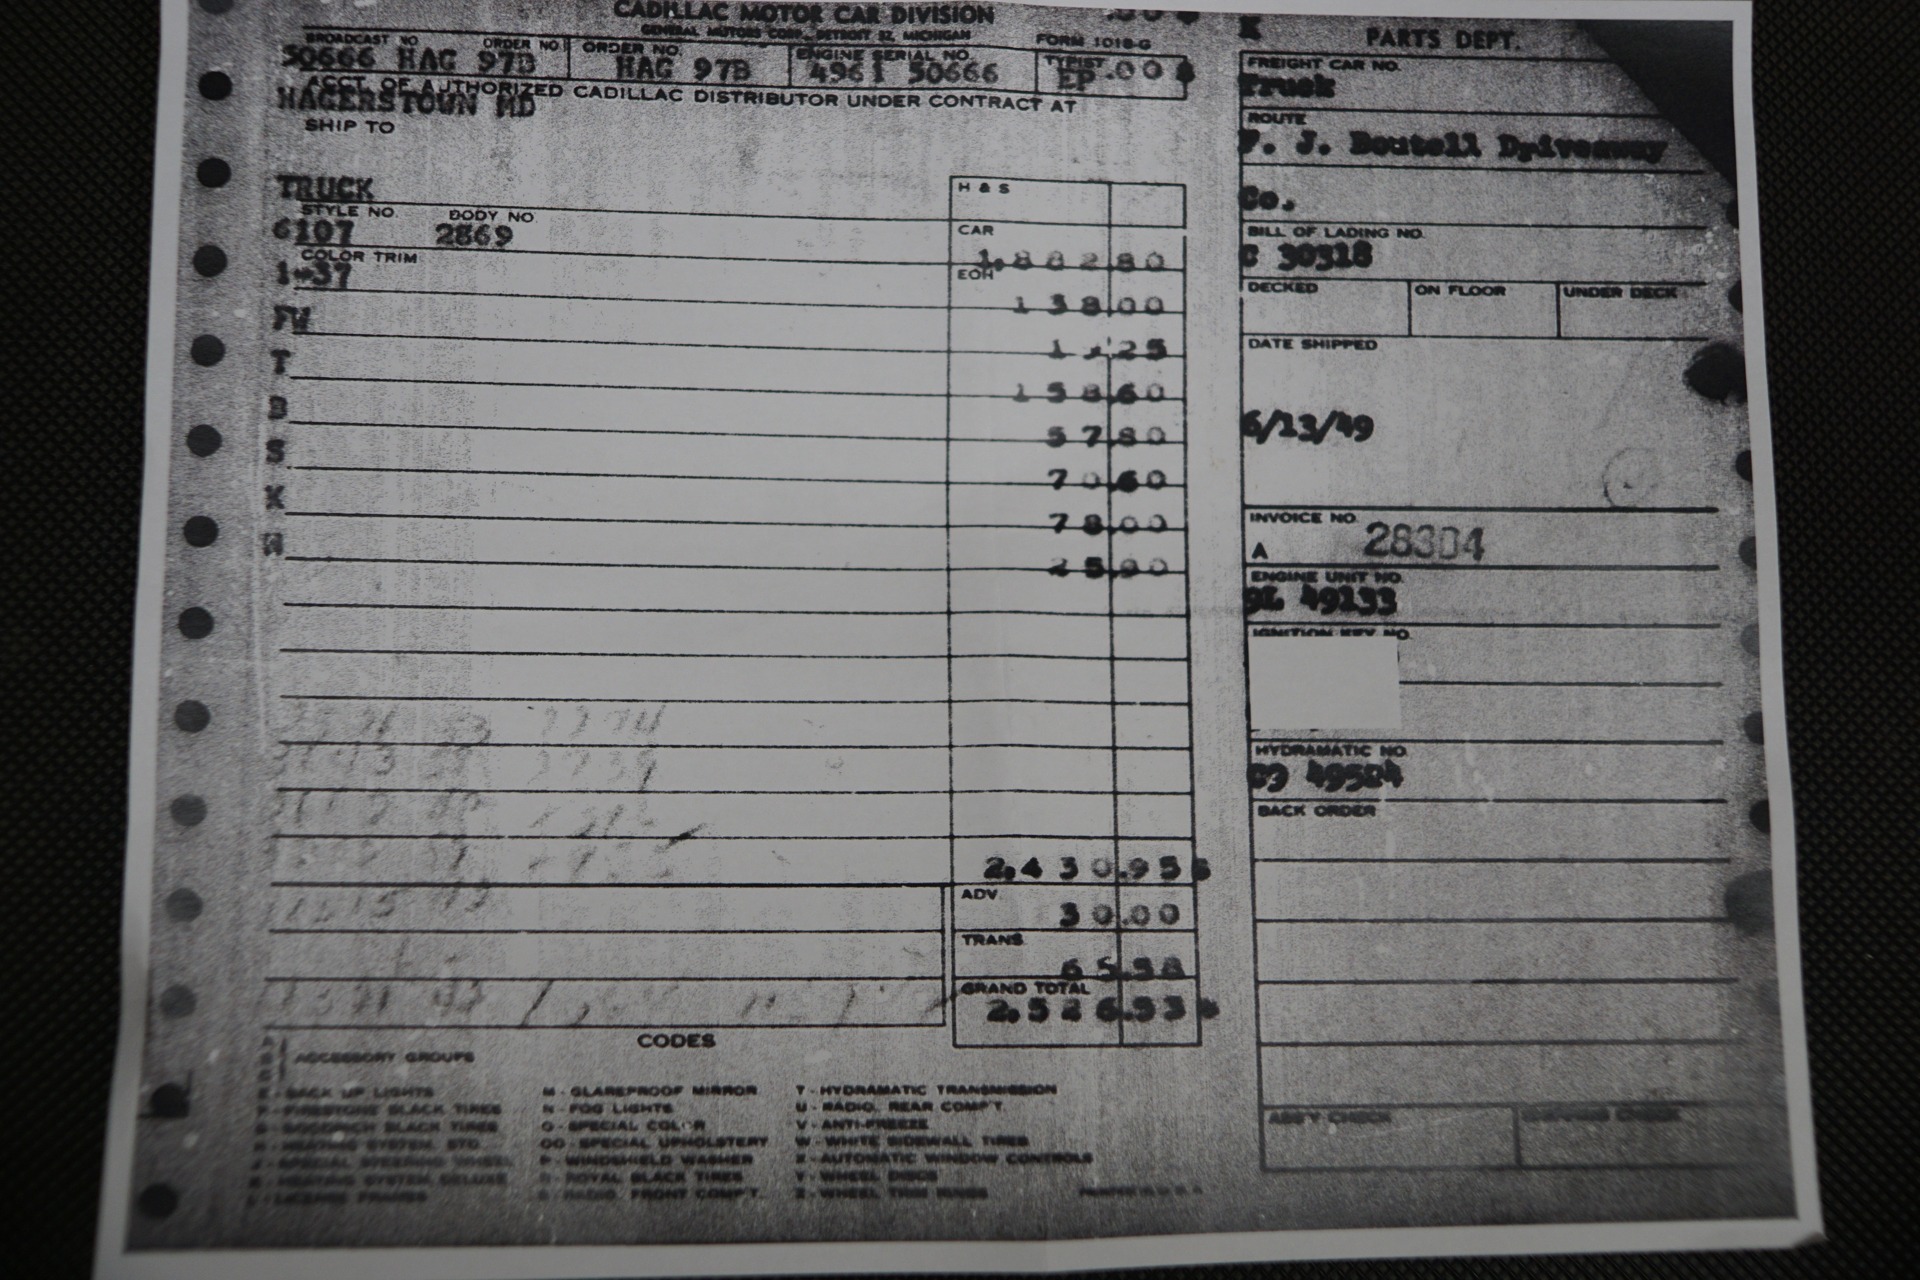 CADILLAC MOTOR CAR DIVISION
GENERAL MOTORS CORP., DETROIT 32, MICHIGAN
FORM 1018-G
BROADCAST NO. ORDER NO. ORDER NO. ENGINE SERIAL NO. TYPIST
50666 HAG 97B HAG 97B 4961 50666 EP .00
ACCT. OF AUTHORIZED CADILLAC DISTRIBUTOR UNDER CONTRACT AT
HAGERSTOWN MD
SHIP TO
TRUCK
H & S
STYLE NO. BODY NO.
6107 2869
CAR
1,882.80
COLOR TRIM
1-37
EOH
138.00
FW
1.25
T
158.60
B
57.80
S
70.60
X
78.00
W
25.90
2,430.95
ADV.
30.00
TRANS
65.98
GRAND TOTAL
2,526.93
CODES
ACCESSORY GROUPS
BACK UP LIGHTS
FIRESTONE BLACK TIRES
GOODRICH BLACK TIRES
HEATING SYSTEM, STD.
SPECIAL STEERING WHEEL
HEATING SYSTEM, DELUXE
LICENSE FRAMES
M - GLAREPROOF MIRROR
N - FOG LIGHTS
O - SPECIAL COLOR
OO - SPECIAL UPHOLSTERY
P - WINDSHIELD WASHER
ROYAL BLACK TIRES
RADIO, FRONT COMP'T.
T - HYDRAMATIC TRANSMISSION
U - RADIO, REAR COMP'T.
V - ANTI-FREEZE
W - WHITE SIDEWALL TIRES
X - AUTOMATIC WINDOW CONTROLS
Y - WHEEL DISCS
Z - WHEEL TRIM RINGS
PARTS DEPT.
FREIGHT CAR NO.
Truck
ROUTE
F. J. Boutell Driveaway
Co.
BILL OF LADING NO.
C 30318
DECKED ON FLOOR UNDER DECK
DATE SHIPPED
6/13/49
INVOICE NO.
A 28304
ENGINE UNIT NO.
9L 49133
IGNITION KEY NO.
HYDRAMATIC NO.
C9 49504
BACK ORDER
ASS'Y CHECK